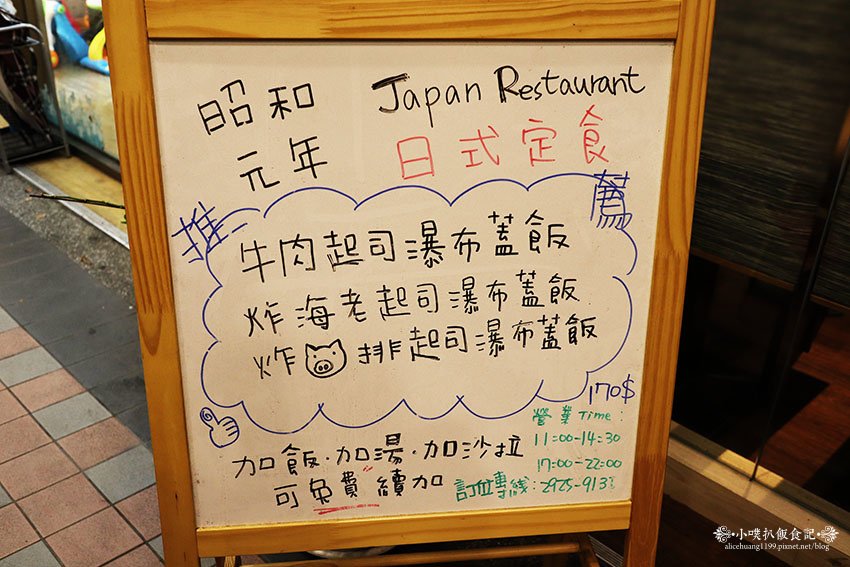 昭和 Japan Restaurant
元年 日式定食
推薦
牛肉起司瀑布蓋飯
炸海老起司瀑布蓋飯
炸 排起司瀑布蓋飯
170$
加飯·加湯·加沙拉
可免費續加
營業Time:
11:00-14:30
17:00-22:00
專線:2925-913
小噗扒飯食記
alicehuang1199.pixnet.net/blog